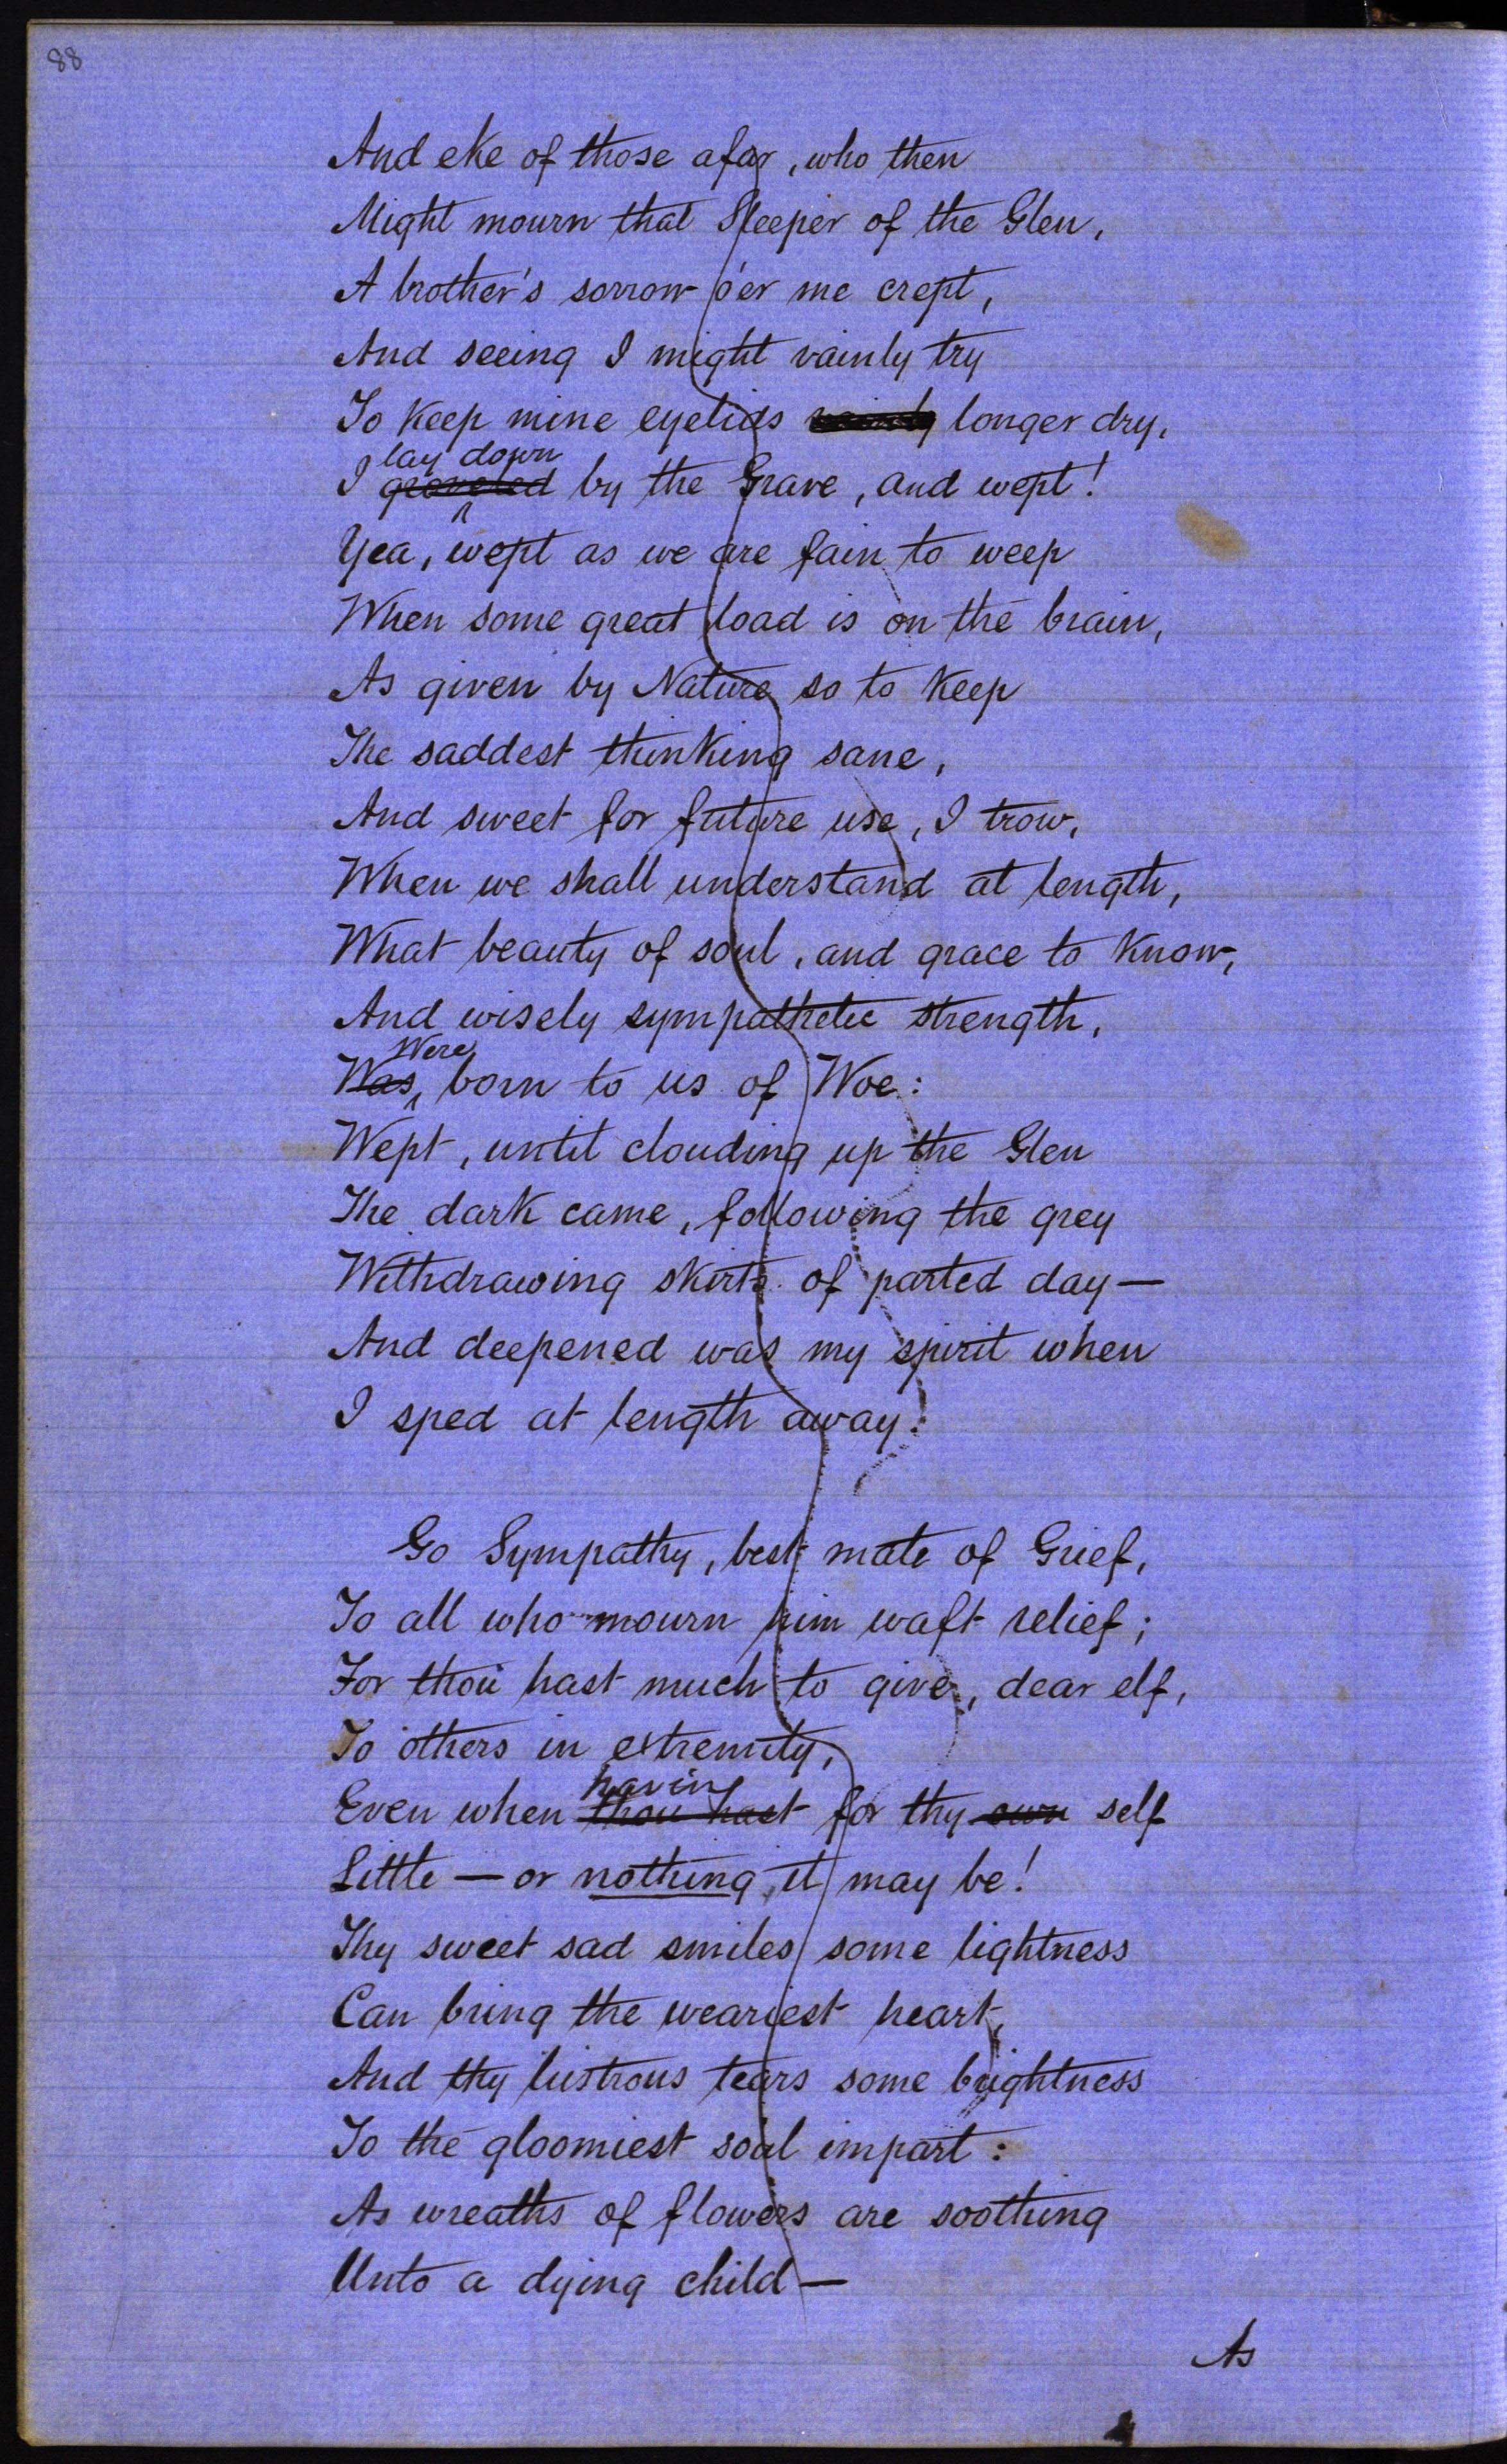 88
And eke of those afar, who then
Might mourn that Sleeper of the Glen,
A brother's sorrow o'er me crept,
And seeing I might vainly try
To keep mine eyelids vainly longer dry,
lay down
I groveled by the Grave, and wept!
Yea, wept as we are fain to weep
When some great load is on the brain,
As given by Nature so to keep
The saddest thinking sane,
And sweet for future use, I trow,
When we shall understand at length,
What beauty of soul, and grace to know,
And wisely sympathetic strength,
Were
Was, born to us of Woe:
Wept, until clouding up the Glen
The dark came, following the grey
Withdrawing skirts of parted day—
And deepened was my spirit when
I sped at length away.
Go Sympathy, best mate of Grief,
To all who mourn him waft relief;
For thou hast much to give, dear elf,
To others in extremity,
having
Even when thou hast for thy own self
Little — or nothing, it may be!
Thy sweet sad smiles some lightness
Can bring the weariest heart,
And thy lustrous tears some brightness
To the gloomiest soul impart:
As wreaths of flowers are soothing
Unto a dying child—
As